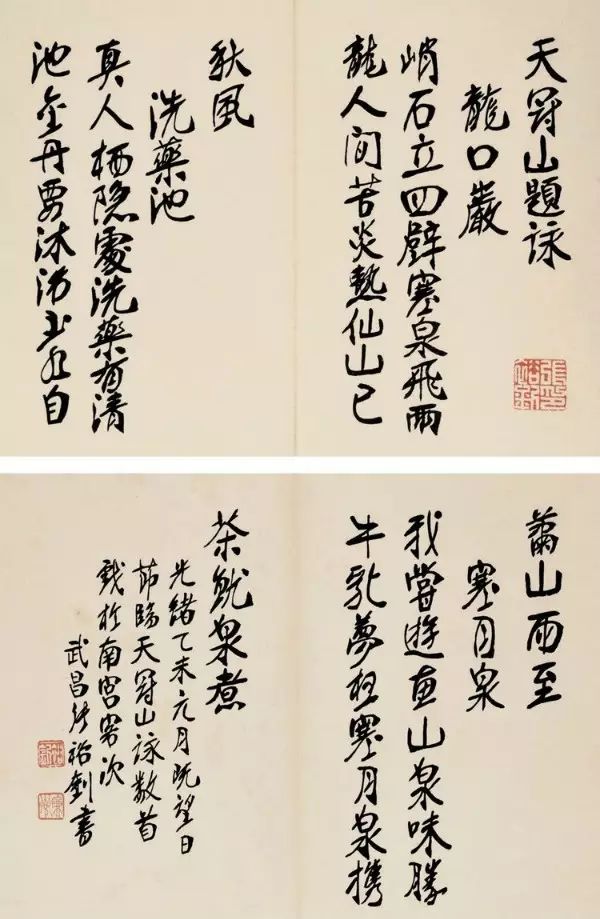 天冠山題詠
龍口巖
峭石立四壁寒泉飛兩
龍人間苦炎熱仙山已
秋風
洗藥池
真人栖隱處洗藥有清
池金丹要沐浴玉水自
山雨至
寒月泉
我嘗遊惠山泉味勝
牛乳夢想寒月泉攜
茶就泉煮
光緒乙未元月既望日
節臨天冠山詠數首
南宮客次
武昌張裕釗書